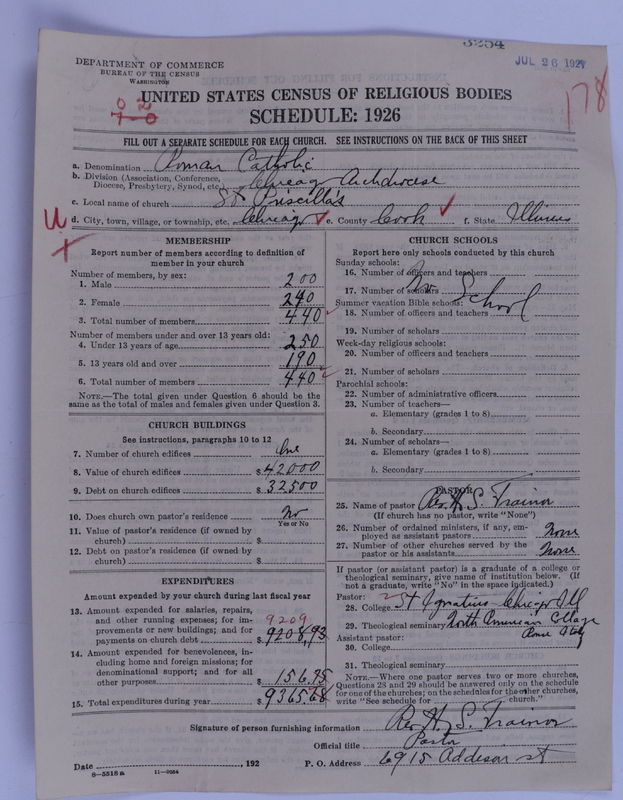 3254
JUL 26 1927
178
DEPARTMENT OF COMMERCE
BUREAU OF THE CENSUS
WASHINGTON
UNITED STATES CENSUS OF RELIGIOUS BODIES
0 2
7-0
SCHEDULE: 1926
FILL OUT A SEPARATE SCHEDULE FOR EACH CHURCH. SEE INSTRUCTIONS ON THE BACK OF THIS SHEET
a. Denomination Roman Catholic
b. Division (Association, Conference, Diocese, Presbytery, Synod, etc. Chicago Archdiocese
c. Local name of church St Priscilla's
d. City, town, village, or township, etc. Chicago e. County Cook f. State Illinois
U
MEMBERSHIP
Report number of members according to definition of
member in your church
Number of members, by sex:
1. Male 200
2. Female 240
3. Total number of members 440
Number of members under and over 13 years old:
4. Under 13 years of age 250
5. 13 years old and over 190
6. Total number of members 440
NOTE.—The total given under Question 6 should be the
same as the total of males and females given under Question 3.
CHURCH BUILDINGS
See instructions, paragraphs 10 to 12
7. Number of church edifices One
8. Value of church edifices $ 42000
9. Debt on church edifices $ 32500
10. Does church own pastor's residence No
Yes or No
11. Value of pastor's residence (if owned by
church) $
12. Debt on pastor's residence (if owned by
church) $
EXPENDITURES
Amount expended by your church during last fiscal year
13. Amount expended for salaries, repairs,
and other running expenses; for im-
provements or new buildings; and for
payments on church debt $ 9208,93
9209
14. Amount expended for benevolences, in-
cluding home and foreign missions; for
denominational support; and for all
other purposes $ 156.75
15. Total expenditures during year $ 9365.68
CHURCH SCHOOLS
Report here only schools conducted by this church
Sunday schools:
16. Number of officers and teachers
17. Number of scholars
No School
Summer vacation Bible schools:
18. Number of officers and teachers
19. Number of scholars
Week-day religious schools:
20. Number of officers and teachers
21. Number of scholars
Parochial schools:
22. Number of administrative officers
23. Number of teachers—
a. Elementary (grades 1 to 8)
b. Secondary
24. Number of scholars—
a. Elementary (grades 1 to 8)
b. Secondary
PASTOR
25. Name of pastor Rev. H. S. Trainor
(If church has no pastor, write "None")
26. Number of ordained ministers, if any, em-
ployed as assistant pastors None
27. Number of other churches served by the
pastor or his assistants None
If pastor (or assistant pastor) is a graduate of a college or
theological seminary, give name of institution below. (If
not a graduate, write "No" in the space indicated.)
Pastor:
28. College St Ignatius Chicago Ill
29. Theological seminary North American College
Rome Italy
Assistant pastor:
30. College
31. Theological seminary
NOTE.—Where one pastor serves two or more churches,
Questions 28 and 29 should be answered only on the schedule
for one of the churches; on the schedules for the other churches,
write "See schedule for church."
Signature of person furnishing information Rev. H. S. Trainor
Official title Pastor
Date , 192 P. O. Address 6915 Addison st
8—5518a 11—9254